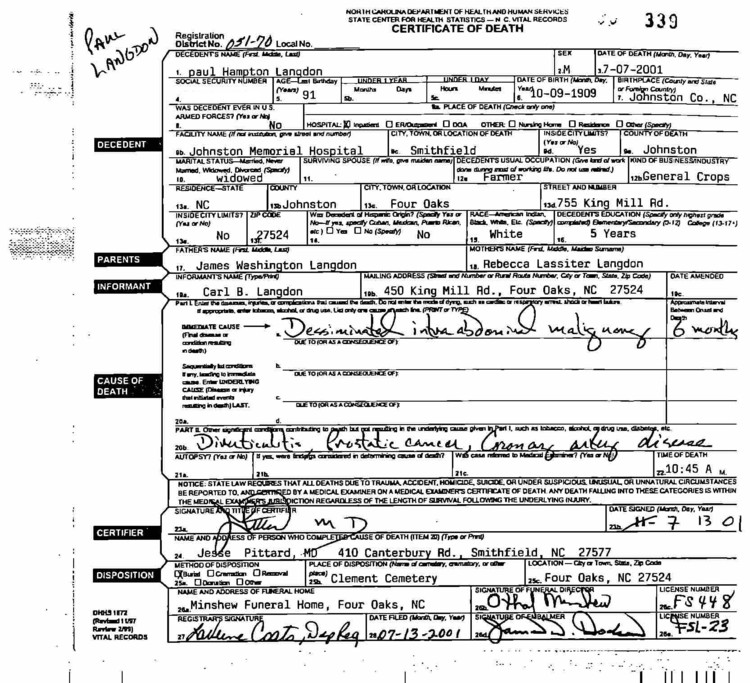 NORTH CAROLINA DEPARTMENT OF HEALTH AND HUMAN SERVICES
STATE CENTER FOR HEALTH STATISTICS — N C. VITAL RECORDS
CERTIFICATE OF DEATH
339
PAUL LANGDON
Registration District No. 051-70 Local No.
DECEDENT'S NAME (First, Middle, Last) SEX DATE OF DEATH (Month, Day, Year)
1. paul Hampton Langdon 2.M 3.7-07-2001
SOCIAL SECURITY NUMBER AGE—Last Birthday (Years) UNDER 1 YEAR Months Days UNDER 1 DAY Hours Minutes DATE OF BIRTH (Month, Day, Year) BIRTHPLACE (County and State or Foreign Country)
4. 5. 91 5b. 5c. 6. 10-09-1909 7. Johnston Co., NC
WAS DECEDENT EVER IN U.S. ARMED FORCES? (Yes or No) 9a. PLACE OF DEATH (Check only one)
8. No HOSPITAL: Inpatient ER/Outpatient DOA OTHER: Nursing Home Residence Other (Specify)
DECEDENT
FACILITY NAME (If not institution, give street and number) CITY, TOWN, OR LOCATION OF DEATH INSIDE CITY LIMITS? (Yes or No) COUNTY OF DEATH
9b. Johnston Memorial Hospital 9c. Smithfield 9d. Yes 9e. Johnston
MARITAL STATUS—Married, Never Married, Widowed, Divorced (Specify) SURVIVING SPOUSE (If wife, give maiden name) DECEDENT'S USUAL OCCUPATION (Give kind of work done during most of working life. Do not use retired.) KIND OF BUSINESS/INDUSTRY
10. widowed 11. 12a Farmer 12b General Crops
RESIDENCE—STATE COUNTY CITY, TOWN, OR LOCATION STREET AND NUMBER
13a. NC 13b Johnston 13c. Four Oaks 13d.755 King Mill Rd.
INSIDE CITY LIMITS? (Yes or No) ZIP CODE Was Decedent of Hispanic Origin? (Specify Yes or No—If yes, specify Cuban, Mexican, Puerto Rican, etc) Yes No (Specify) RACE—American Indian, Black, White, Etc. (Specify) DECEDENT'S EDUCATION (Specify only highest grade completed) Elementary/Secondary (0-12) College (13-17+)
13e. No 13f. 27524 14. No 15. White 16. 5 Years
PARENTS
FATHER'S NAME (First, Middle, Last) MOTHER'S NAME (First, Middle, Maiden Surname)
17. James Washington Langdon 18. Rebecca Lassiter Langdon
INFORMANT
INFORMANT'S NAME (Type/Print) MAILING ADDRESS (Street and Number or Rural Route Number, City or Town, State, Zip Code) DATE AMENDED
19a. Carl B. Langdon 19b. 450 King Mill Rd., Four Oaks, NC 27524 19c.
Part I. Enter the diseases, injuries, or complications that caused the death. Do not enter the mode of dying, such as cardiac or respiratory arrest, shock or heart failure.
If appropriate, enter tobacco, alcohol, or drug use. List only one cause of each line. (PRINT or TYPE) Approximate Interval Between Onset and Death
IMMEDIATE CAUSE (Final disease or condition resulting in death) a. Dessiminated intra abdominal malignancy 6 months
DUE TO (OR AS A CONSEQUENCE OF):
CAUSE OF DEATH
Sequentially list conditions if any, leading to immediate cause. Enter UNDERLYING CAUSE (Disease or injury that initiated events resulting in death) LAST.
b.
DUE TO (OR AS A CONSEQUENCE OF):
c.
DUE TO (OR AS A CONSEQUENCE OF):
20a. d.
PART II. Other significant conditions contributing to death but not resulting in the underlying cause given in Part I, such as tobacco, alcohol, or drug use, diabetes, etc.
20b. Diverticulitis, Prostatic cancer, Coronary artery disease
AUTOPSY? (Yes or No) If yes, were findings considered in determining cause of death? Was case referred to Medical Examiner? (Yes or No) TIME OF DEATH
21a. 21b. 21c. 22.10:45 A M.
NOTICE: STATE LAW REQUIRES THAT ALL DEATHS DUE TO TRAUMA, ACCIDENT, HOMICIDE, SUICIDE, OR UNDER SUSPICIOUS, UNUSUAL, OR UNNATURAL CIRCUMSTANCES
BE REPORTED TO, AND CERTIFIED BY A MEDICAL EXAMINER ON A MEDICAL EXAMINER'S CERTIFICATE OF DEATH. ANY DEATH FALLING INTO THESE CATEGORIES IS WITHIN
THE MEDICAL EXAMINER'S JURISDICTION REGARDLESS OF THE LENGTH OF SURVIVAL FOLLOWING THE UNDERLYING INJURY.
CERTIFIER
SIGNATURE AND TITLE OF CERTIFIER DATE SIGNED (Month, Day, Year)
23a. M D 23b. 7 13 01
NAME AND ADDRESS OF PERSON WHO COMPLETED CAUSE OF DEATH (ITEM 20) (Type or Print)
24. Jesse Pittard, MD 410 Canterbury Rd., Smithfield, NC 27577
DISPOSITION
METHOD OF DISPOSITION PLACE OF DISPOSITION (Name of cemetery, crematory, or other place) LOCATION — City or Town, State, Zip Code
Burial Cremation Removal
25a. Donation Other 25b. Clement Cemetery 25c. Four Oaks, NC 27524
NAME AND ADDRESS OF FUNERAL HOME SIGNATURE OF FUNERAL DIRECTOR LICENSE NUMBER
26a. Minshew Funeral Home, Four Oaks, NC 26b. 26c. FS 448
REGISTRAR'S SIGNATURE DATE FILED (Month, Day, Year) SIGNATURE OF EMBALMER LICENSE NUMBER
27 Dep Reg 28 07-13-2001 26d. 26e. FSL-23
DHHS 1872
(Revised 11/97
Review 2/99)
VITAL RECORDS